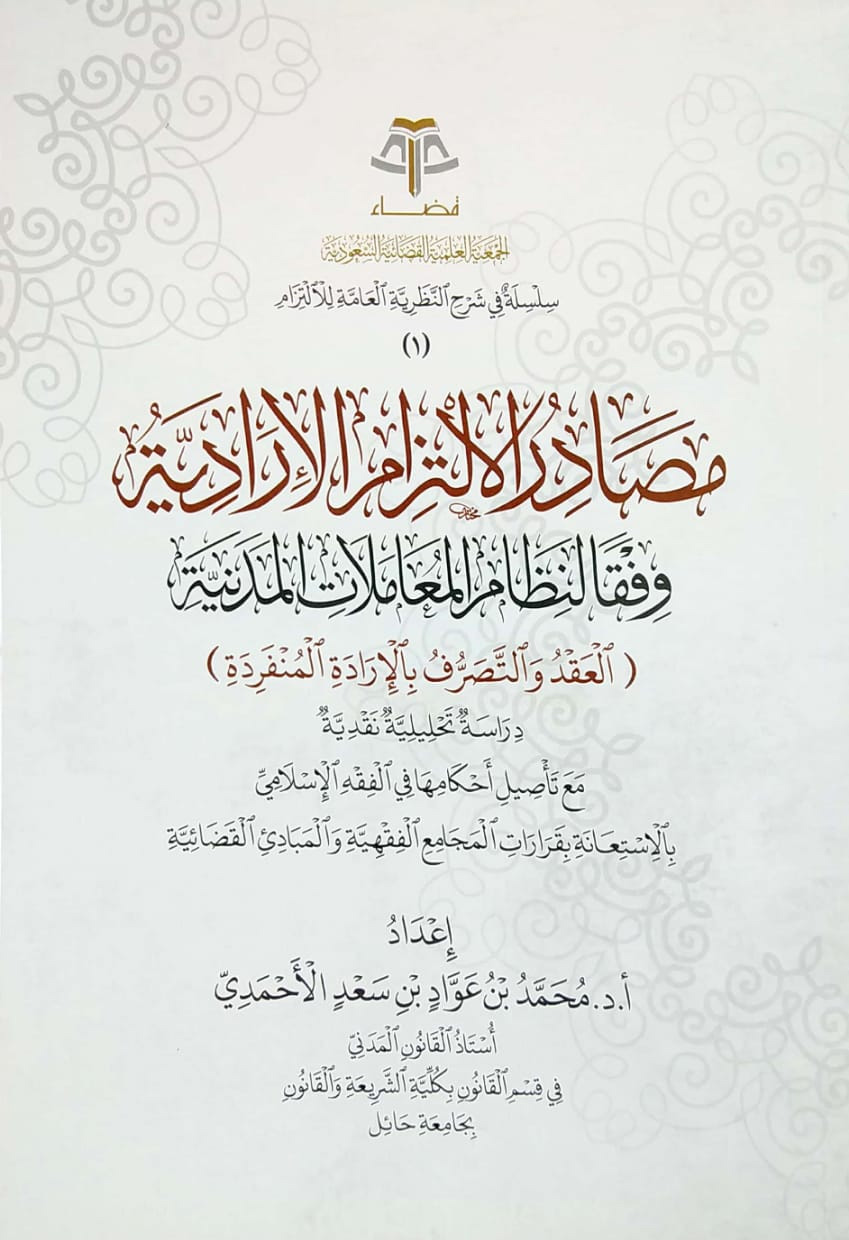 قضاء
الجمعية العلمية القضائية السعودية
سِلْسِلَةٌ فِي شَرْحِ النَّظَرِيَّةِ الْعَامَّةِ لِلْاَلْتِزَامِ
(١)
مَصَادِرُ الالْتِزَامِ الإِرَادِيَّةُ
وِفْقًا لِنِظَامِ المُعَامَلَاتِ المَدَنِيَّةِ
( الْعَقْدُ وَالتَّصَرُّفُ بِالْإِرَادَةِ الْمُنْفَرِدَةِ )
دِرَاسَةٌ تَحْلِيلِيَّةٌ نَقْدِيَّةٌ
مَعَ تَأْصِيلِ أَحْكَامِهَا فِي الْفِقْهِ الْإِسْلَامِيِّ
بِالْاِسْتِعَانَةِ بِقَرَارَاتِ الْمَجَامِعِ الْفِقْهِيَّةِ وَالْمَبَادِئِ الْقَضَائِيَّةِ
إِعْدَادُ
أ.د. مُحَمَّدُ بْنُ عَوَّادِ بْنِ سَعْدٍ الْأَحْمَدِيّ
أُسْتَاذُ الْقَانُونِ الْمَدَنِيِّ
فِي قِسْمِ الْقَانُونِ بِكُلِّيَّةِ الشَّرِيعَةِ وَالْقَانُونِ
بِجَامِعَةِ حَائِل